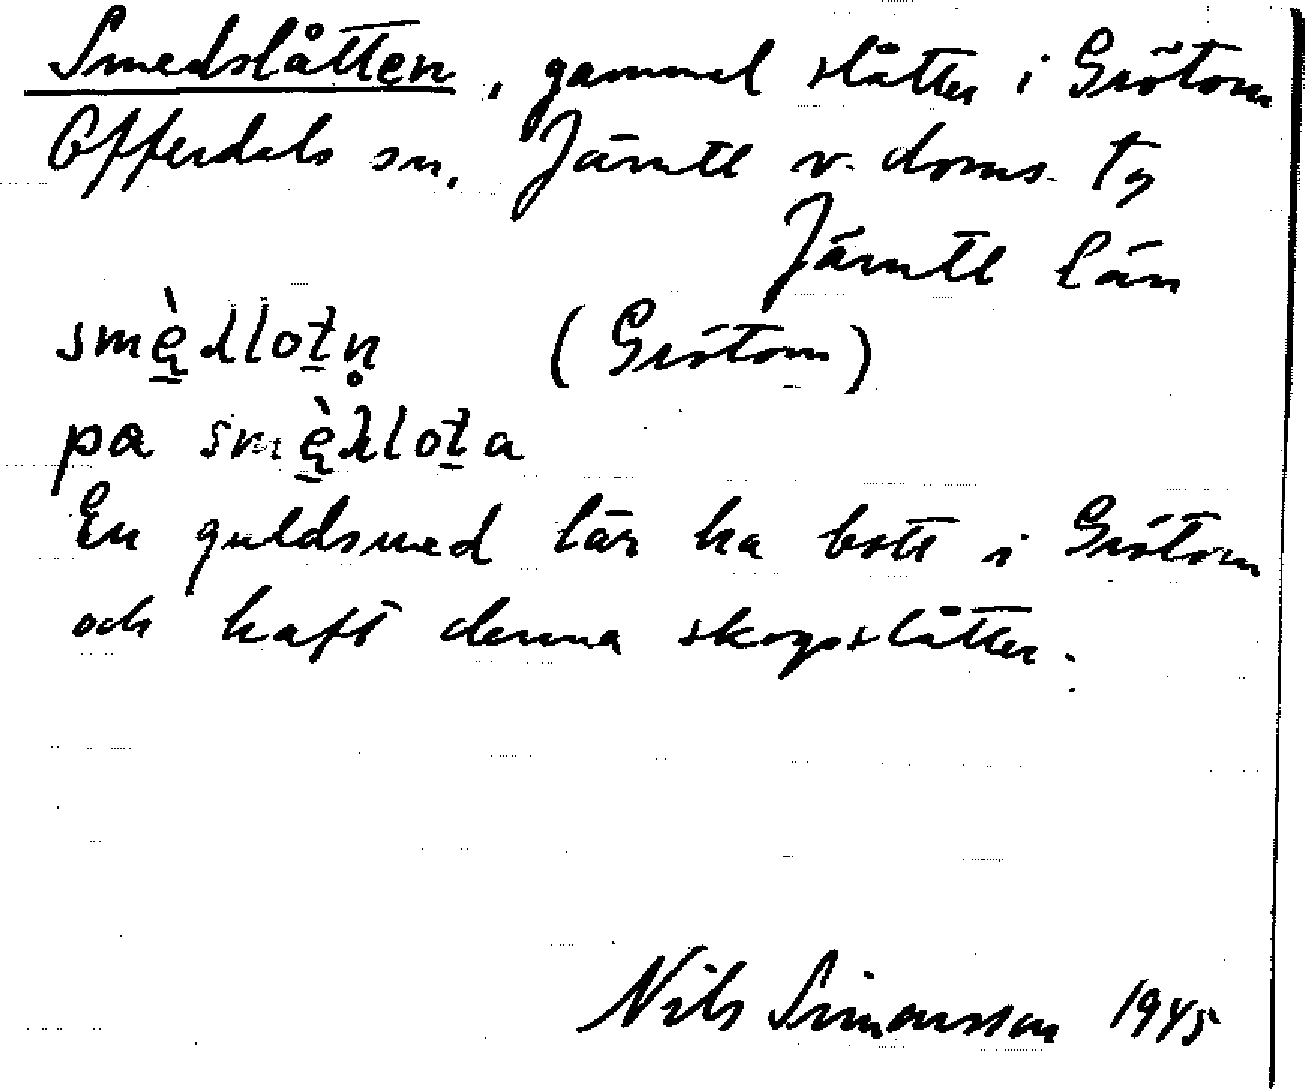 Smedslåtten, gammel slåtter i Grötom
Offerdals sn. Jämtl v. doms. tg
Jämtl län
smę̀dlotn̥ (Grötom)
pa smę̀dlota
En guldsmed lär ha bott i Grötom
och haft denna skogsslåtter.
Nils Simonsson 1945